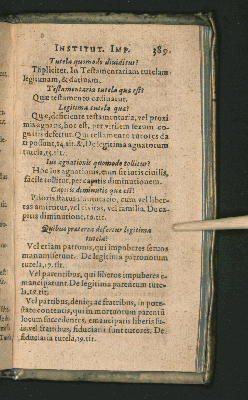 INSTITUT. IMP. 389.
Tutela quomodo diuiditur?
Tripliciter. In Testamentariam tutelam
legitimam, & datiuam.
Testamentaria tutela quæ est?
Quæ testamento ordinatur.
Legitima tutela quæ?
Quæ, deficiente testamentaria, vel proxi
mis agnatis, hoc est, per virilem sexum co-
gnatis defertur. Qui testamento tutores da
ri possunt, 14. tit. &, De legitima agnatorum
tutela, 15. tit.
Ius agnationis quomodo tollitur?
Hoc ius agnationis, cum sit iuris ciuilis,
facile tollitur, per capitis diminutionem.
Capitis deminutio quæ est?
Prioris status mutatio, cum vel liber-
tas amittitur, vel ciuitas, vel familia. De ca
pitis diminutione, 16. tit.
Quibus præterea defertur legitima
tutela?
Vel etiam patronis, qui impuberes seruos
manumiserunt. De legitima patronorum
tutela, 17. tit.
Vel parentibus, qui liberos impuberes e-
manciparunt. De legitima parentum tute-
la, 18. tit.
Vel patribus, deniq; ac fratribus, in pote-
state contentis, qui in mortuorum parentū
locum succedentes, emancipatis liberis sui
is, vel fratribus, fiduciarii sunt tutores. De
fiduciaria tutela, 19. tit.